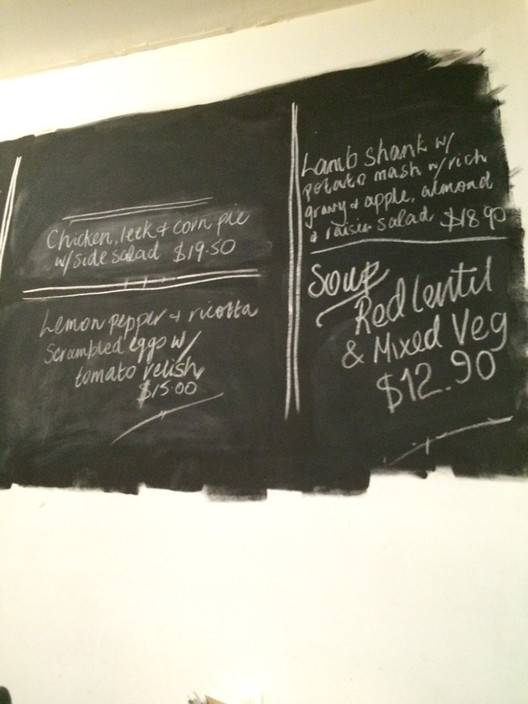 Chicken, leek + corn pie
w/side salad $19.50
Lemon pepper + ricotta
Scrambled eggs w/
tomato relish
$15.00
Lamb shank w/
potato mash w/rich
gravy + apple, almond
+ raisin salad $18.90
Soup
Red lentil
& Mixed Veg
$12.90